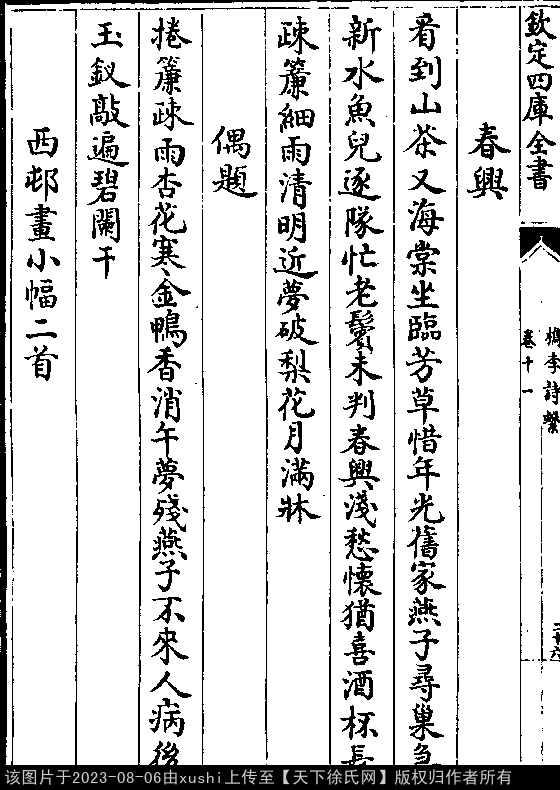 欽定四庫全書
檇李詩繫
卷十一
二十六
春興
看到山茶又海棠坐臨芳草惜年光舊家燕子尋巢急
新水魚兒逐隊忙老鬢未判春興淺愁懷猶喜酒杯長
疎簾細雨清明近夢破梨花月滿牀
偶題
捲簾疎雨杏花寒金鴨香消午夢殘燕子不來人病後
玉釵敲遍碧闌干
西邨畫小幅二首
该图片于2023-08-06由xushi上传至【天下徐氏网】版权归作者所有